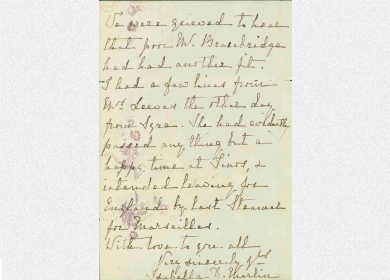 We were grieved to hear
that poor Mr. Bracebridge
had had another fit.
I had a few lines from
Mrs Leeves the other day
from Syra. She had evidently
passed anything but a
happy time at Tinos, &
intended leaving for
England by last Steamer
for Marseilles.
With love to you all
Very sincerely yrs
Isabella D. Merlin